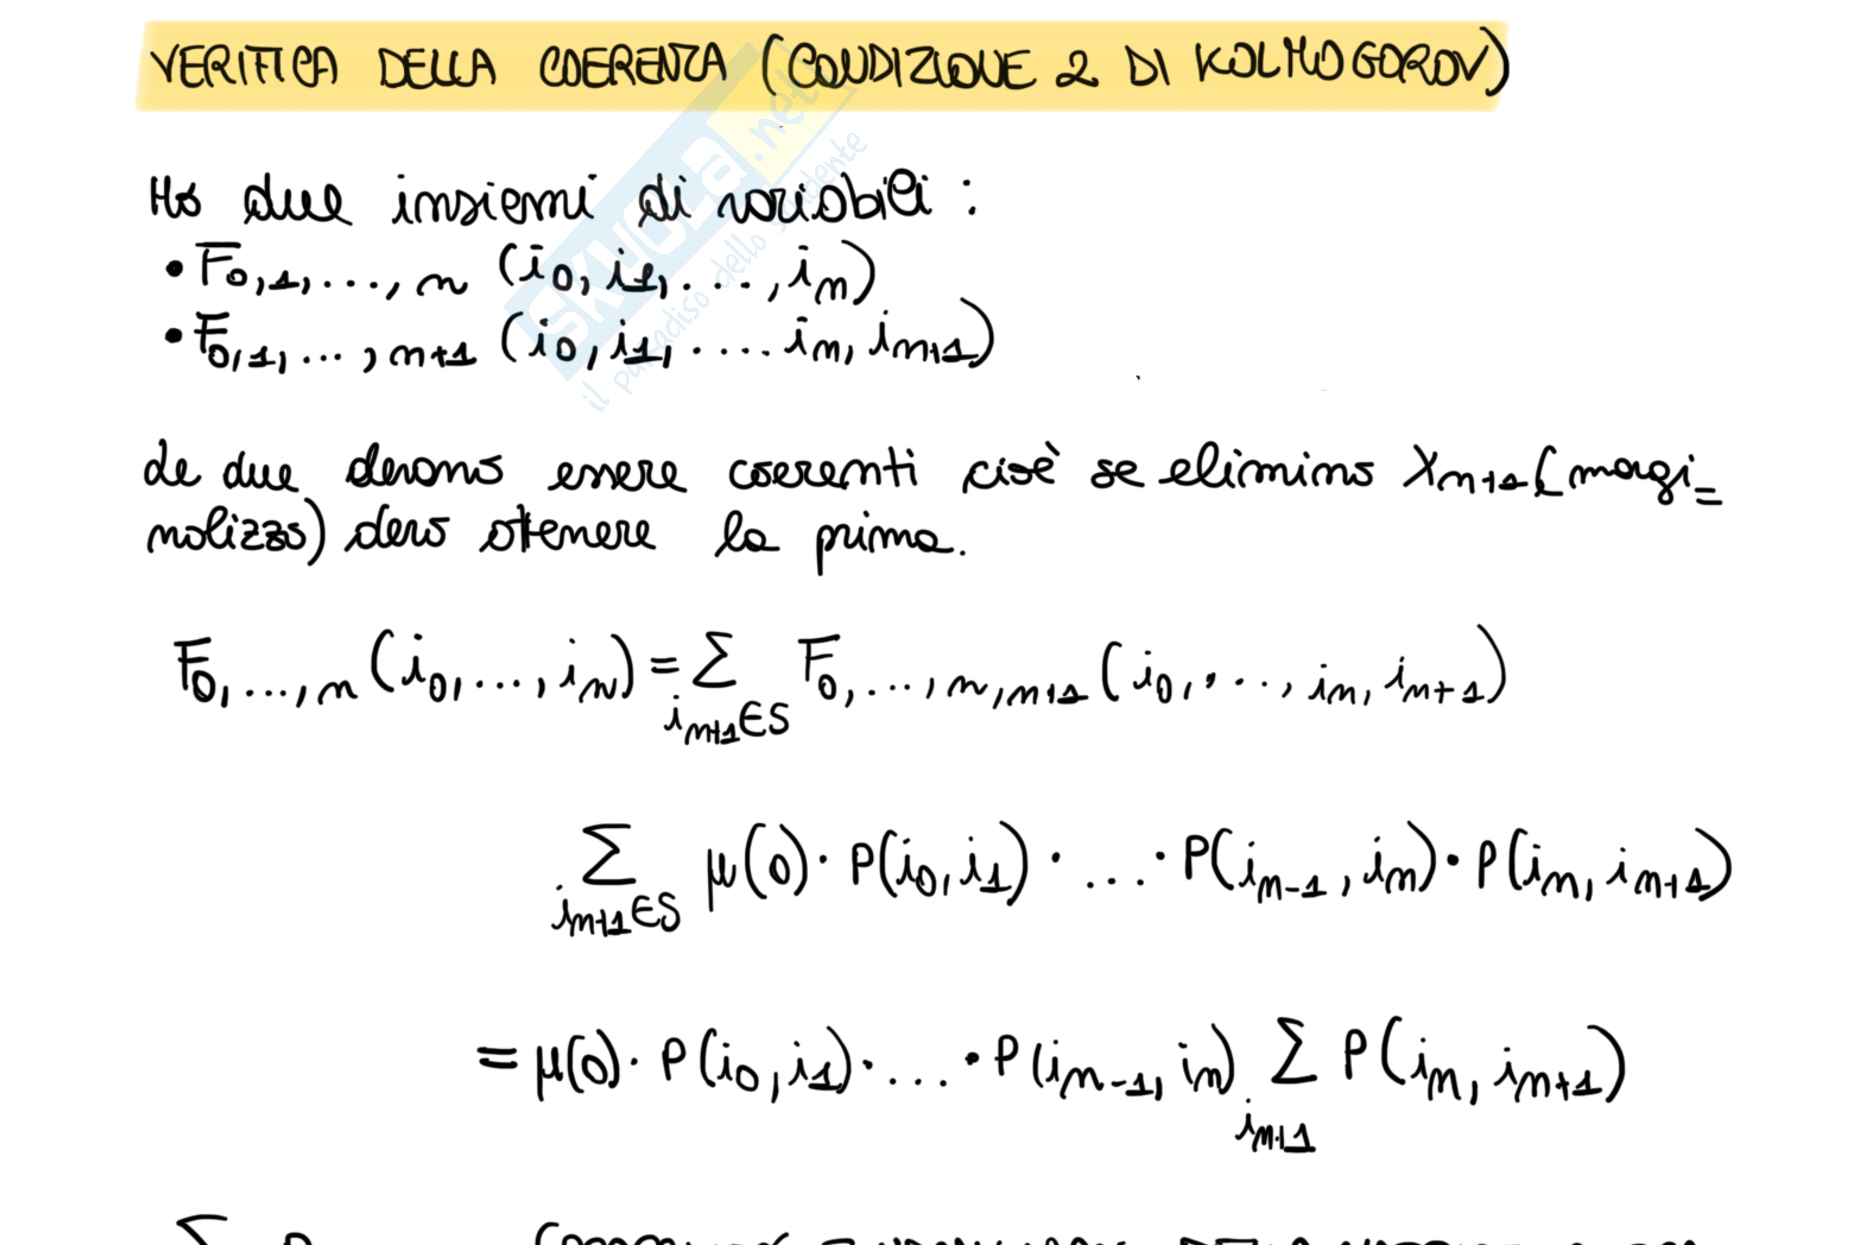 VERIFICA DELLA COERENZA (CONDIZIONE 2 DI KOLMOGOROV)
Ho due insiemi di variabili :
• F0,1,...,n (i0, i1, ..., in)
• F0,1,...,n+1 (i0, i1, .... in, in+1)
Le due devono essere coerenti cioè se elimino Xn+1 (margi=
nalizzo) devo ottenere la prima.
F0,...,n (i0, ..., in) = ∑ F0,...,n,n+1 (i0, ..., in, in+1)
in+1∈S
∑ μ(0) · P(i0, i1) · ... · P(in-1, in) · P(in, in+1)
in+1∈S
= μ(0) · P(i0, i1) · ... · P(in-1, in) ∑ P(in, in+1)
in+1
SKUOLA.net
il paradiso dello studente